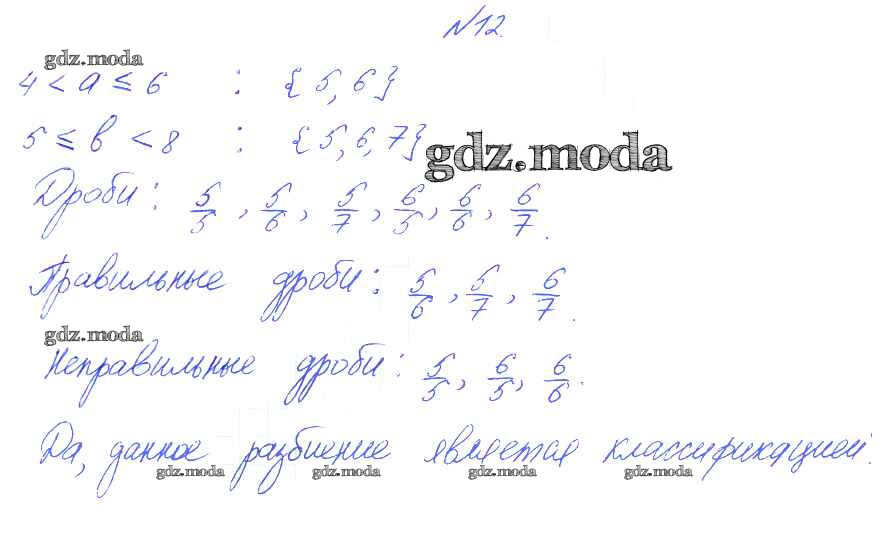 №12.
gdz.moda
4 < a ≤ 6 : {5, 6}
5 ≤ b < 8 : {5, 6, 7}
gdz.moda
Дроби: 5/5, 5/6, 5/7, 6/5, 6/6, 6/7.
Правильные дроби: 5/6, 5/7, 6/7.
gdz.moda
Неправильные дроби: 5/5, 6/5, 6/6.
Да, данное разбиение является классификацией.
gdz.moda gdz.moda gdz.moda gdz.moda